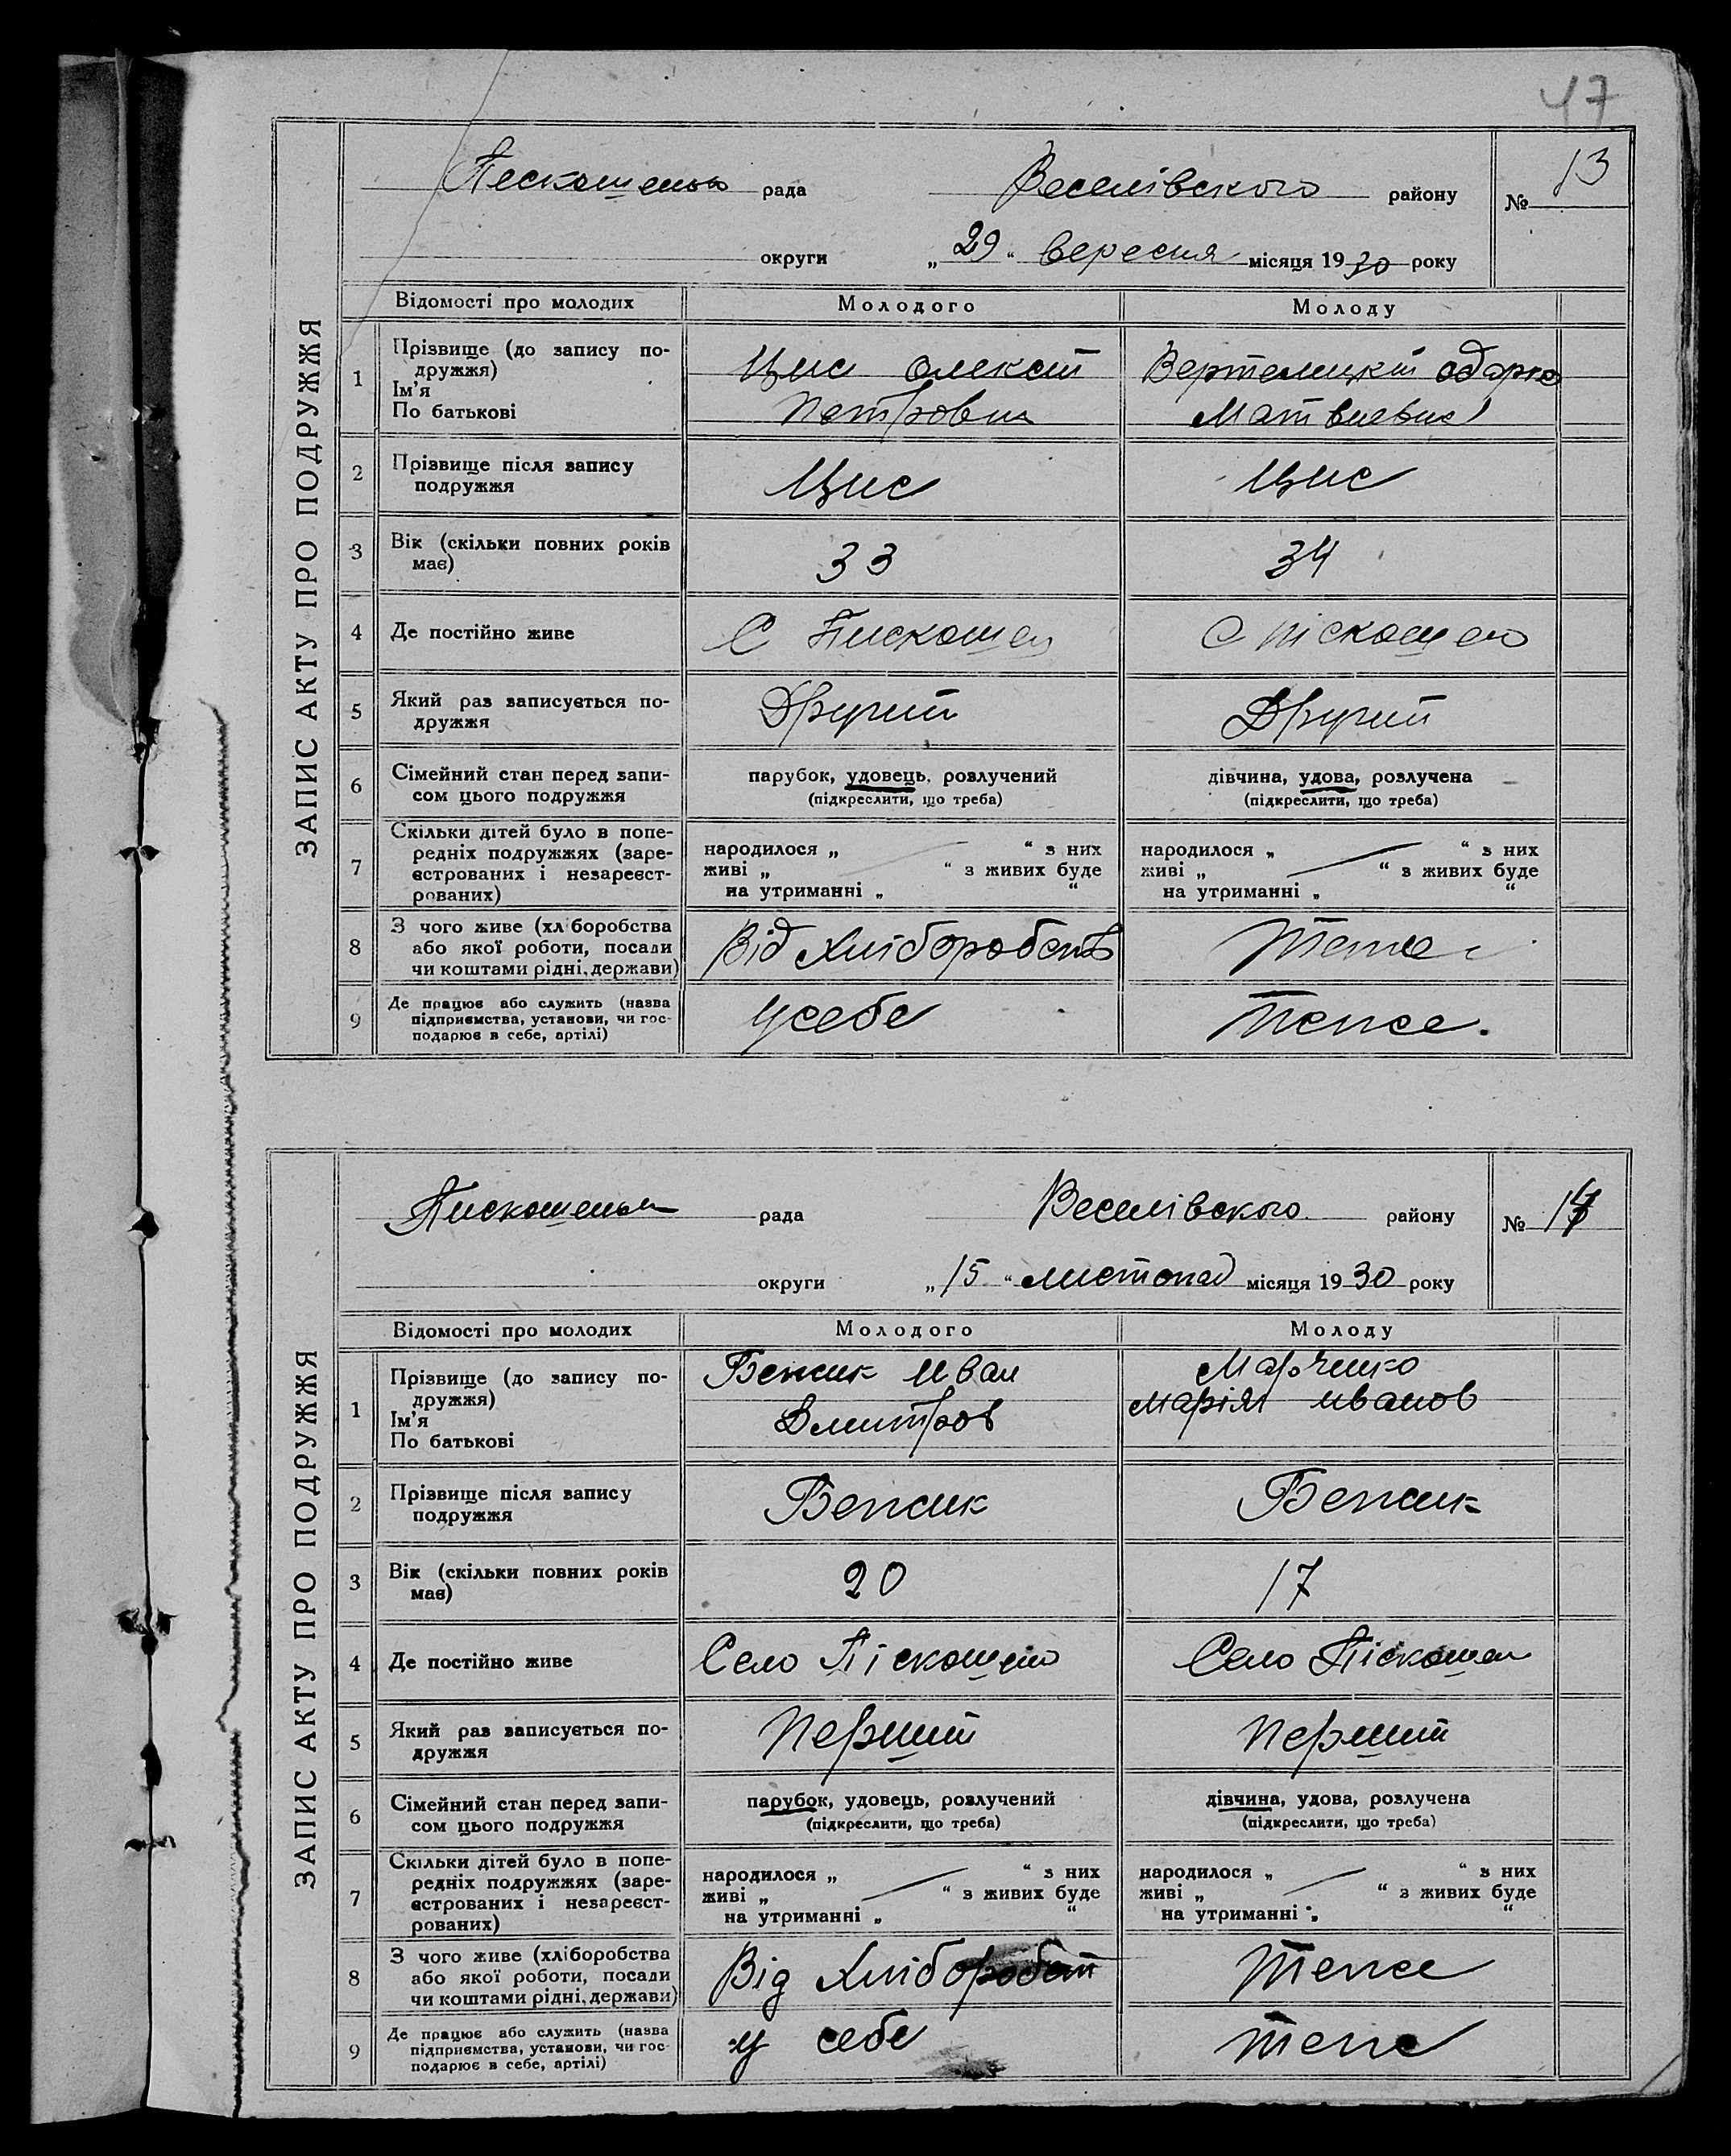 47
ЗАПИС АКТУ ПРО ПОДРУЖЖЯ
рада Веселівського району № 13
округи „29“ вересня місяця 1930 року
Відомості про молодих Молодого Молоду
1 Прізвище (до запису по-
дружжя)
Ім'я
По батькові
Цис Олексій
Петрович
одарка
2 Прізвище після запису
подружжя
Цис Цис
3 Вік (скільки повних років
має)
33 34
4 Де постійно живе С Пискошен С Піскошено
5 Який раз записується по-
дружжя
Другий Другий
6 Сімейний стан перед запи-
сом цього подружжя
парубок, удовець, розлучений
(підкреслити, що треба)
дівчина, удова, розлучена
(підкреслити, що треба)
7 Скільки дітей було в попе-
редніх подружжях (заре-
єстрованих і незареєст-
рованих)
народилося „ “ з них
живі „ “ з живих буде
на утриманні „ “
народилося „ “ з них
живі „ “ з живих буде
на утриманні „ “
8 З чого живе (хл боробства
або якої роботи, посади
чи коштами рідні, держави)
Від Хліборобств Теже
9 Де працює або служить (назва
підприємства, установи, чи гос-
подарює в себе, артілі)
Усебе Теже.
ЗАПИС АКТУ ПРО ПОДРУЖЖЯ
рада Веселівського району № 14
округи „15“ листопад місяця 1930 року
Відомості про молодих Молодого Молоду
1 Прізвище (до запису по-
дружжя)
Ім'я
По батькові
Бежик Иван
Дмитров
Марченко
Марія Иванов
2 Прізвище після запису
подружжя
Бежик Бежик
3 Вік (скільки повних років
має)
20 17
4 Де постійно живе Село Піскошено Село Піскошен
5 Який раз записується по-
дружжя
Перший Перший
6 Сімейний стан перед запи-
сом цього подружжя
парубок, удовець, розлучений
(підкреслити, що треба)
дівчина, удова, розлучена
(підкреслити, що треба)
7 Скільки дітей було в попе-
редніх подружжях (заре-
єстрованих і незареєст-
рованих)
народилося „ “ з них
живі „ “ з живих буде
на утриманні „ “
народилося „ “ з них
живі „ “ з живих буде
на утриманні „ “
8 З чого живе (хліборобства
або якої роботи, посади
чи коштами рідні, держави)
Від Хліборобст Теже
9 Де працює або служить (назва
підприємства, установи, чи гос-
подарює в себе, артілі)
у себе Теже